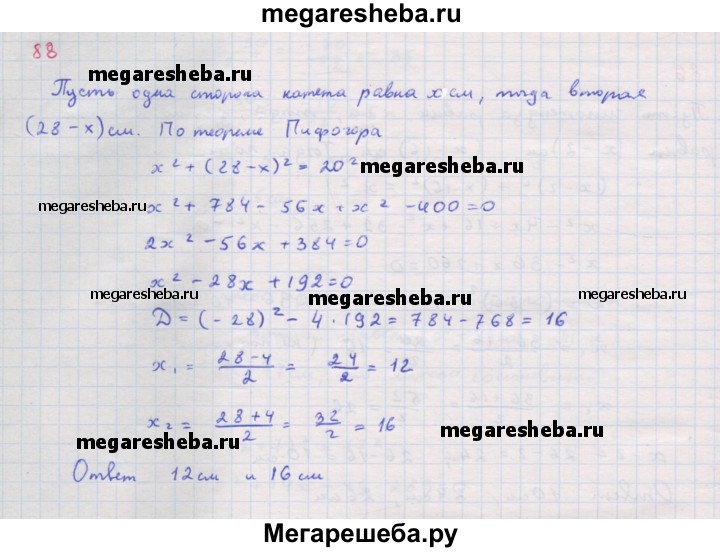 megaresheba.ru
88
megaresheba.ru
Пусть одна сторона катета равна x см, тогда вторая
(28 - x) см. По теореме Пифогора
x² + (28 - x)² = 20²
megaresheba.ru
megaresheba.ru
x² + 784 - 56x + x² - 400 = 0
megaresheba.ru
2x² - 56x + 384 = 0
x² - 28x + 192 = 0
megaresheba.ru
megaresheba.ru
megaresheba.ru
D = (-28)² - 4 · 192 = 784 - 768 = 16
x₁ = (28-4)/2 = 24/2 = 12
x₂ = (28+4)/2 = 32/2 = 16
megaresheba.ru
megaresheba.ru
Ответ 12 см и 16 см
Мегарешеба.ру